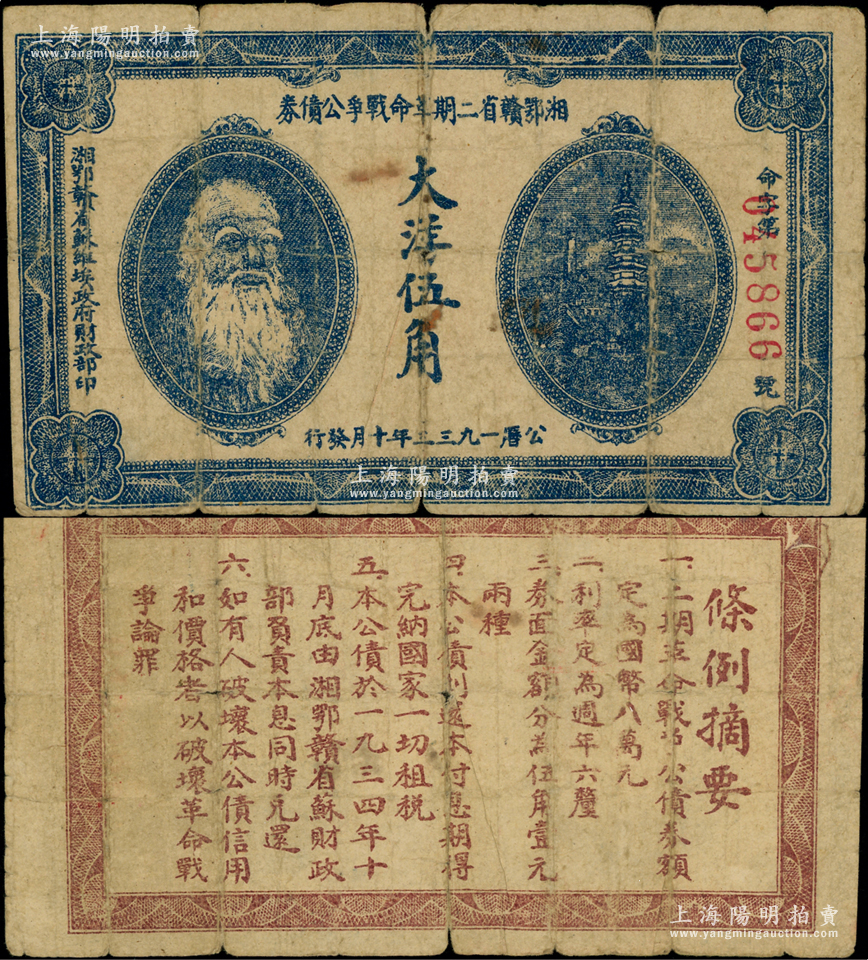 上海陽明拍賣
www.yangmingauction.com
湘鄂贛省二期革命戰爭公債券
命字第
045866
號
大洋伍角
湘鄂贛省蘇維埃政府財政部印
公曆一九三三年十月發行
上海陽明拍賣
www.yangmingauction.com
條例摘要
一、二期革命戰爭公債券額
定為國幣八萬元
二、利率定為週年六釐
三、券面金額分為伍角壹元
兩種
四、本公債到還本付息期得
完納國家一切租稅
五、本公債於一九三四年十
月底由湘鄂贛省蘇財政
部負責本息同時兌還
六、如有人破壞本公債信用
和價格者以破壞革命戰
爭論罪
上海陽明拍賣
www.yangmingauction.com